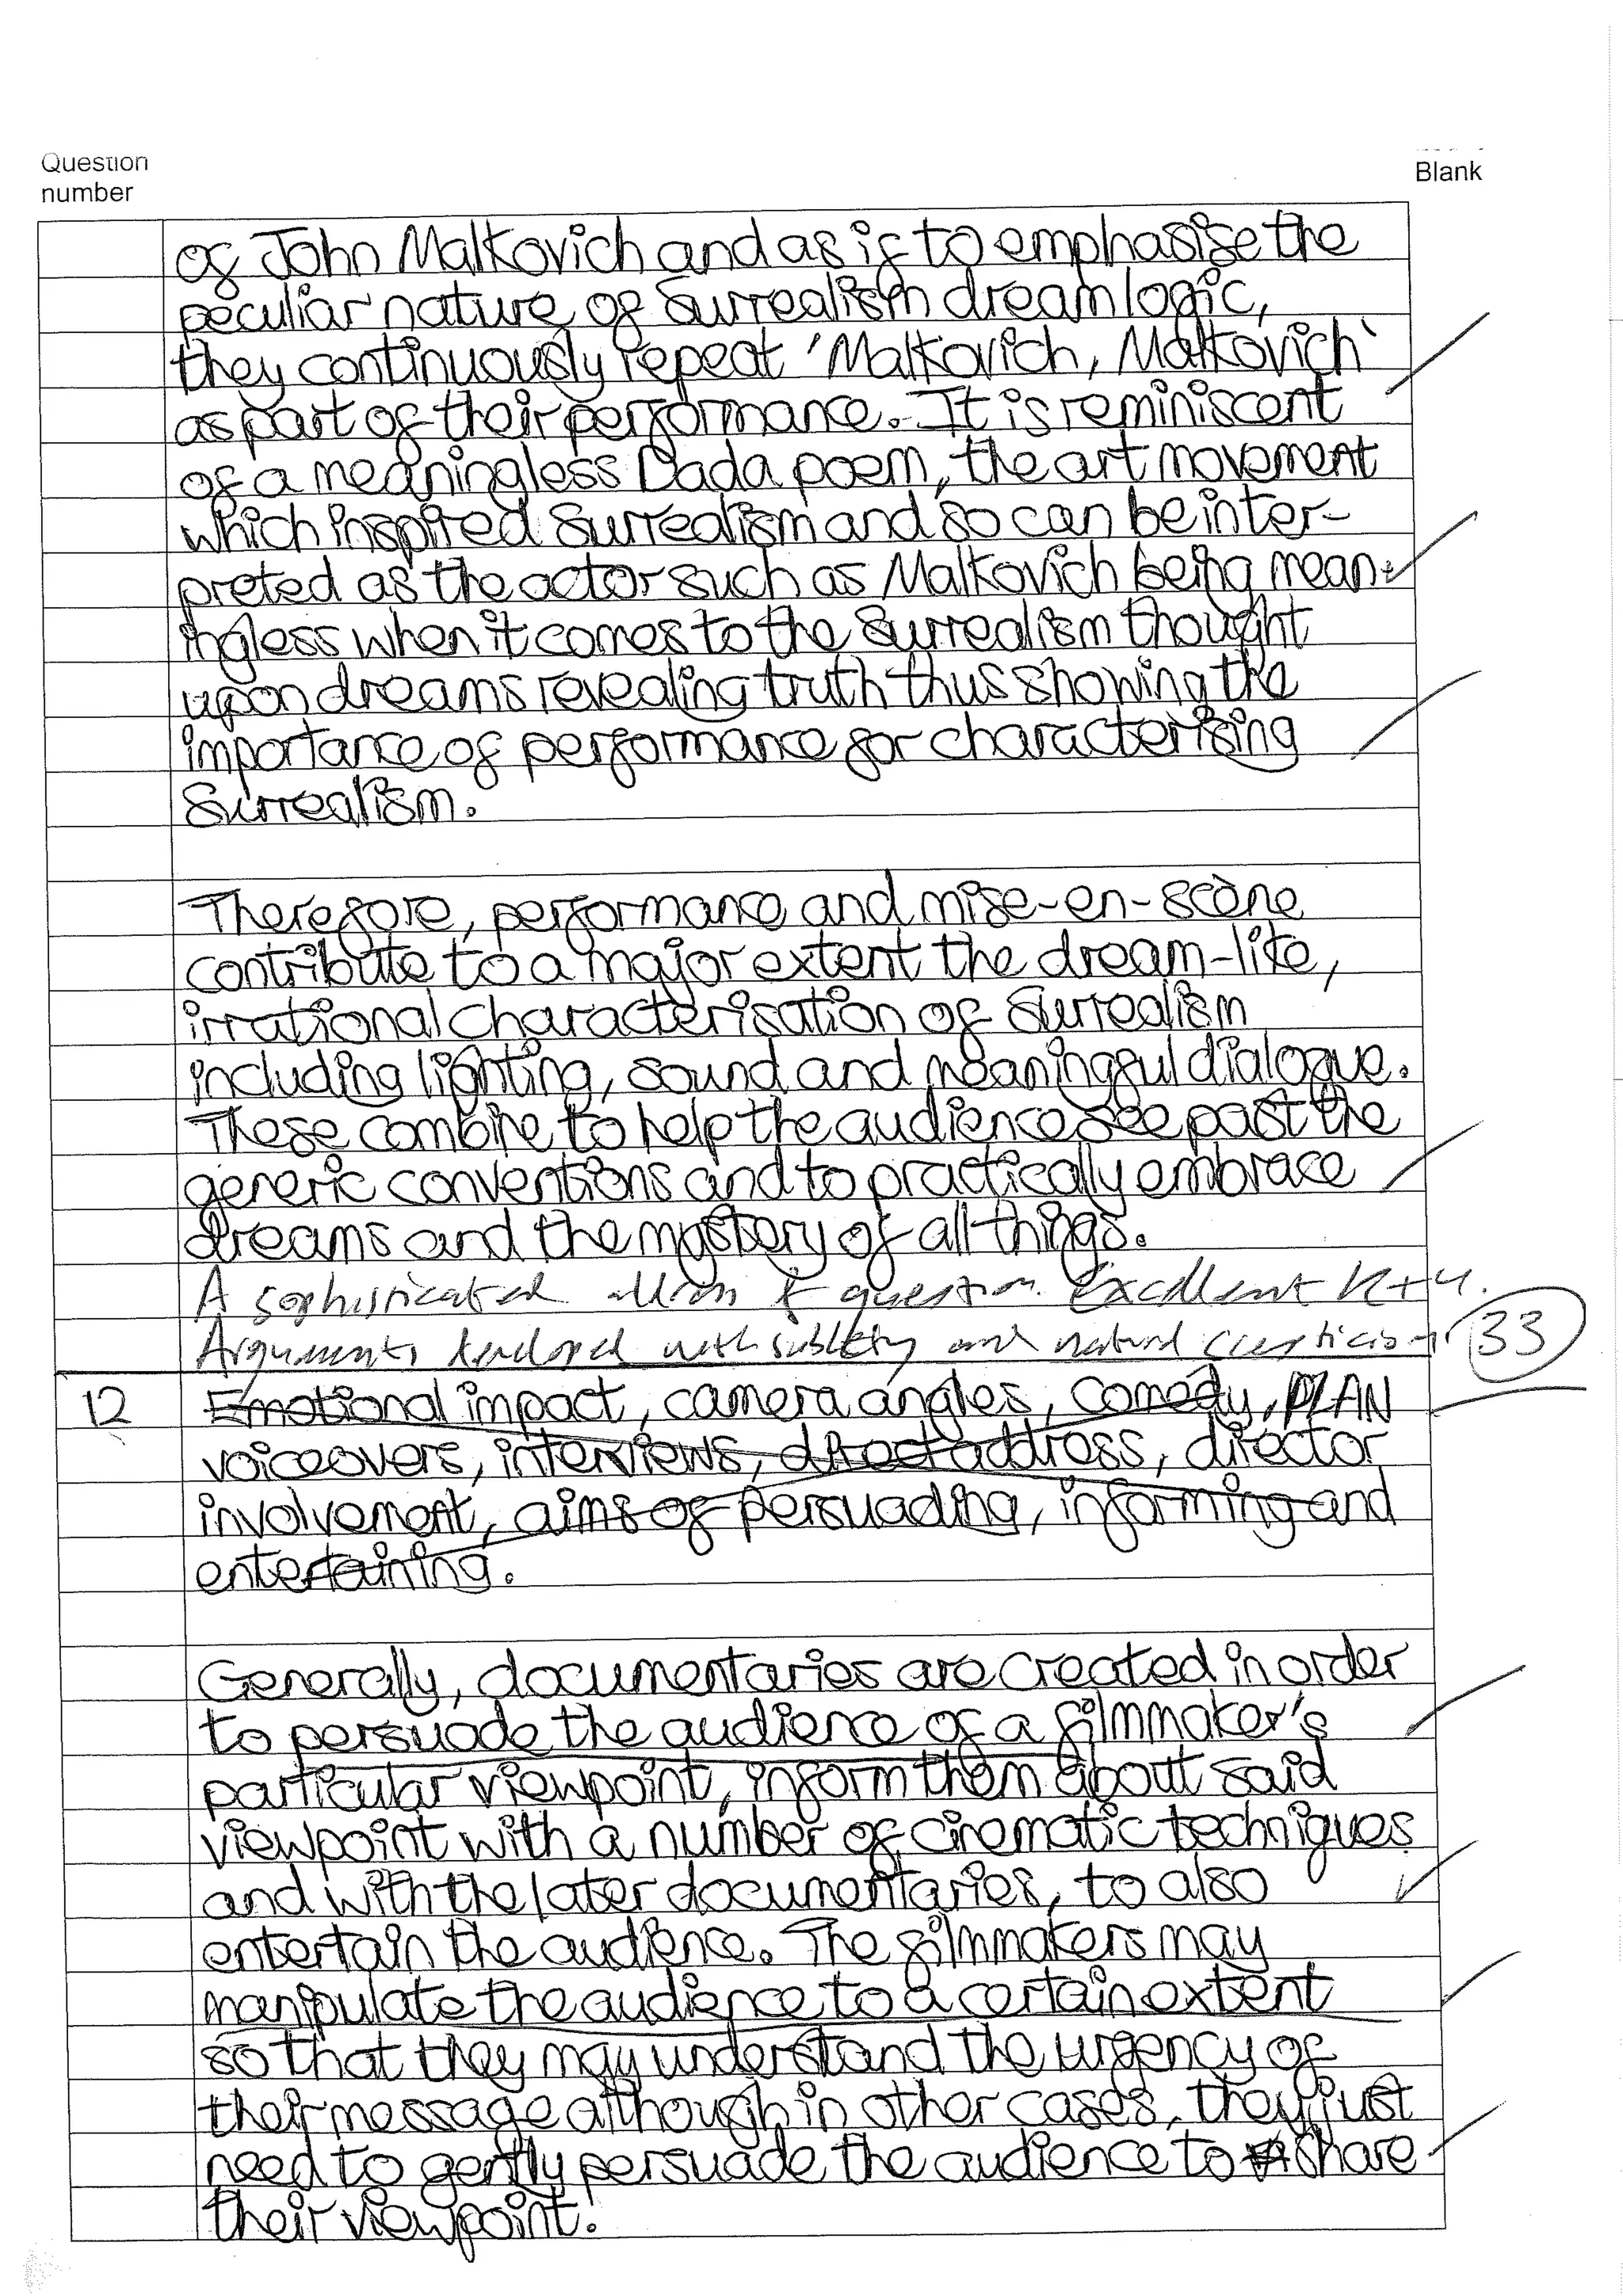 Question
number
Blank
of John Malkovich and as if to emphasise the
peculiar nature of Surrealism dream logic,
they continuously repeat 'Malkovich, Malkovich'
as part of their performance. It is reminiscent
of a meaningless Dada poem, the art movement
which inspired Surrealism and so can be inter-
preted as the actor such as Malkovich being mean-
ingless when it comes to the Surrealism thought
upon dreams revealing truth thus showing the
importance of performance for characterising
Surrealism.
Therefore, performance and mise-en-scène
contribute to a major extent the dream-like,
irrational characterisation of Surrealism
including lighting, sound and meaningful dialogue.
These combine to help the audience see past the
generic conventions and to practically embrace
dreams and the mystery of all things.
A sophisticated question. Excellent K+U.
Arguments developed with subtlety and natural
33
12 Emotional impact, camera angles, comedy, PLAN
voiceovers, interviews, direct address, director
involvement, aims of persuading, informing and
entertaining.
Generally, documentaries are created in order
to persuade the audience of a filmmaker's
particular viewpoint, inform them about said
viewpoint with a number of cinematic techniques
and with the later documentaries, to also
entertain the audience. The filmmakers may
manipulate the audience to a certain extent
so that they may understand the urgency of
their message although in other cases, they just
need to gently persuade the audience to share
their viewpoint.